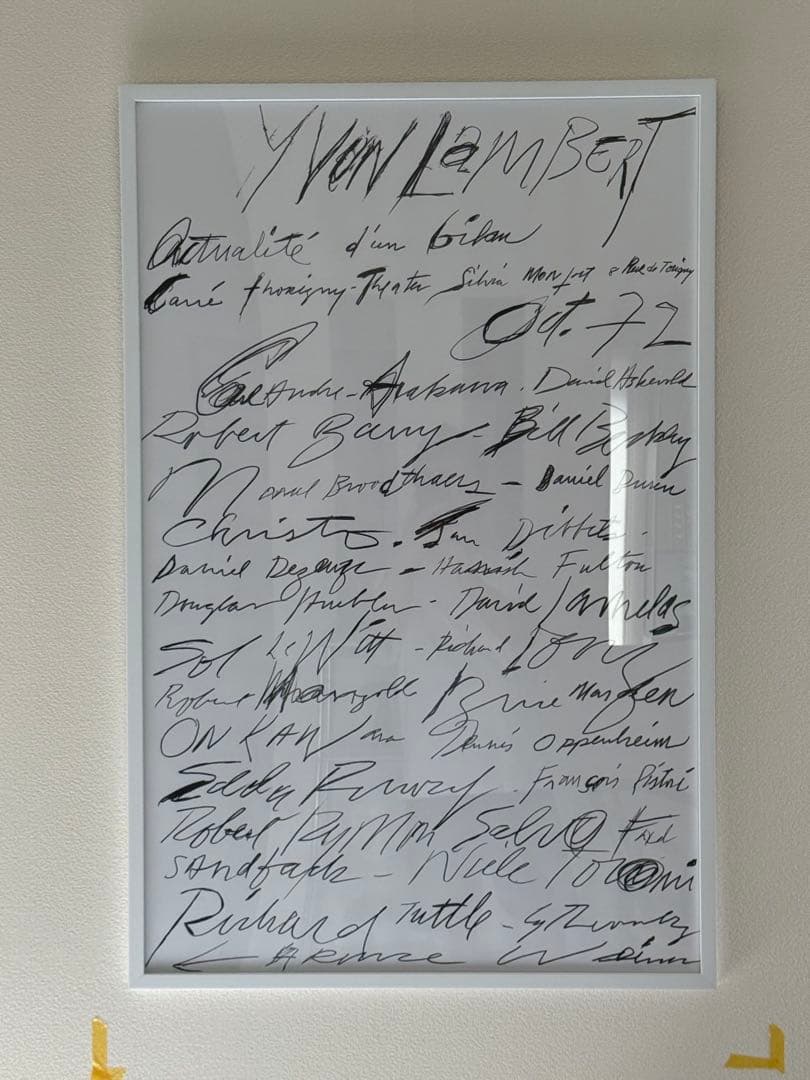 YVON LAMBERT
Actualité d'un bilan
Carré Thorigny-Theater Silvia Monfort 8 Rue de Torigny
Oct. 72
Carl Andre - Arakawa. David Askevold
Robert Barry - Bill Beckley
Marcel Broodthaers - Daniel Buren
Christo. Jan Dibbets.
Daniel Dezeuze - Hamish Fulton
Douglas Huebler - David Lamelas
Sol LeWitt - Richard Long
Robert Mangold Brice Marden
ON KAWara Dennis Oppenheim
Edda Renouf. François Ristori
Robert RyMan SalvO Fred
SANdback - Niele Toroni
Richard Tuttle - Cy Twombly
LAwrence Weiner